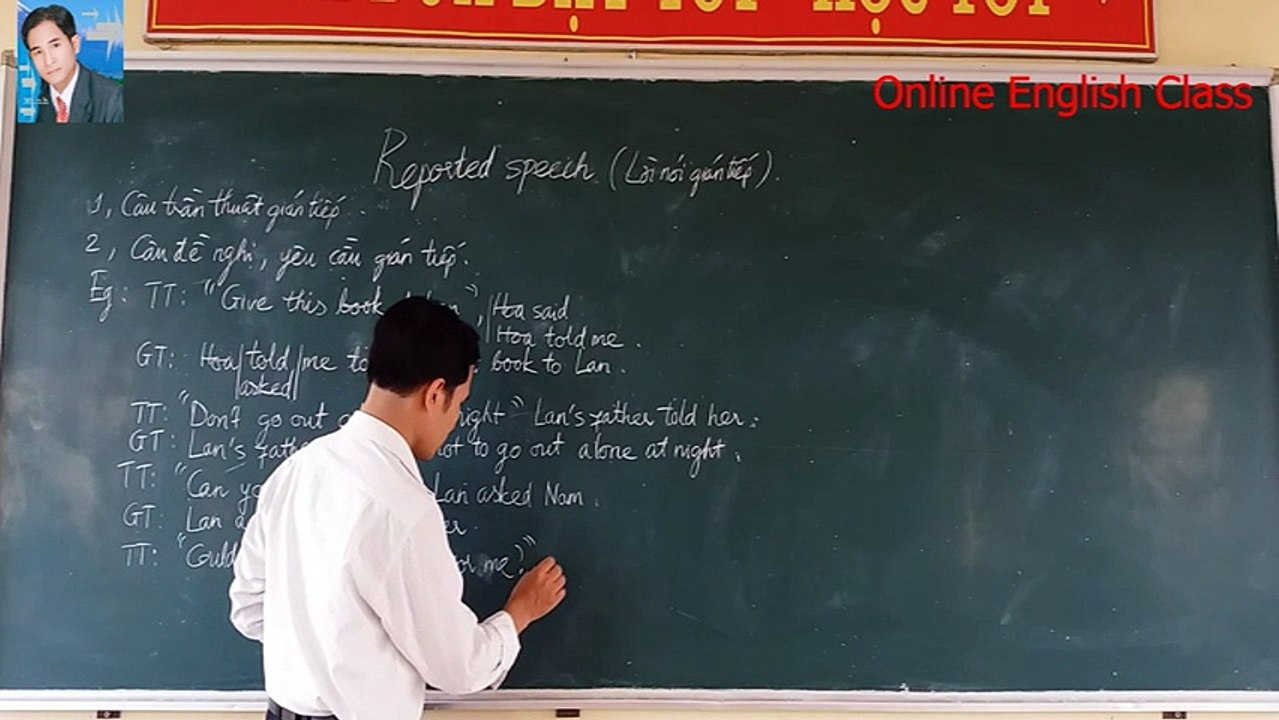 DẠY TỐT - HỌC TỐT
Online English Class
Reported speech (Lời nói gián tiếp).
1, Câu trần thuật gián tiếp.
2, Câu đề nghị, yêu cầu gián tiếp.
Eg: TT: "Give this book Lan", Hoa said
Hoa told me.
GT: Hoa told me to book to Lan.
asked
TT: "Don't go out night" Lan's father told her.
GT: Lan's not to go out alone at night.
TT: "Can Lan asked Nam.
GT: Lan
TT: "Could for me?"